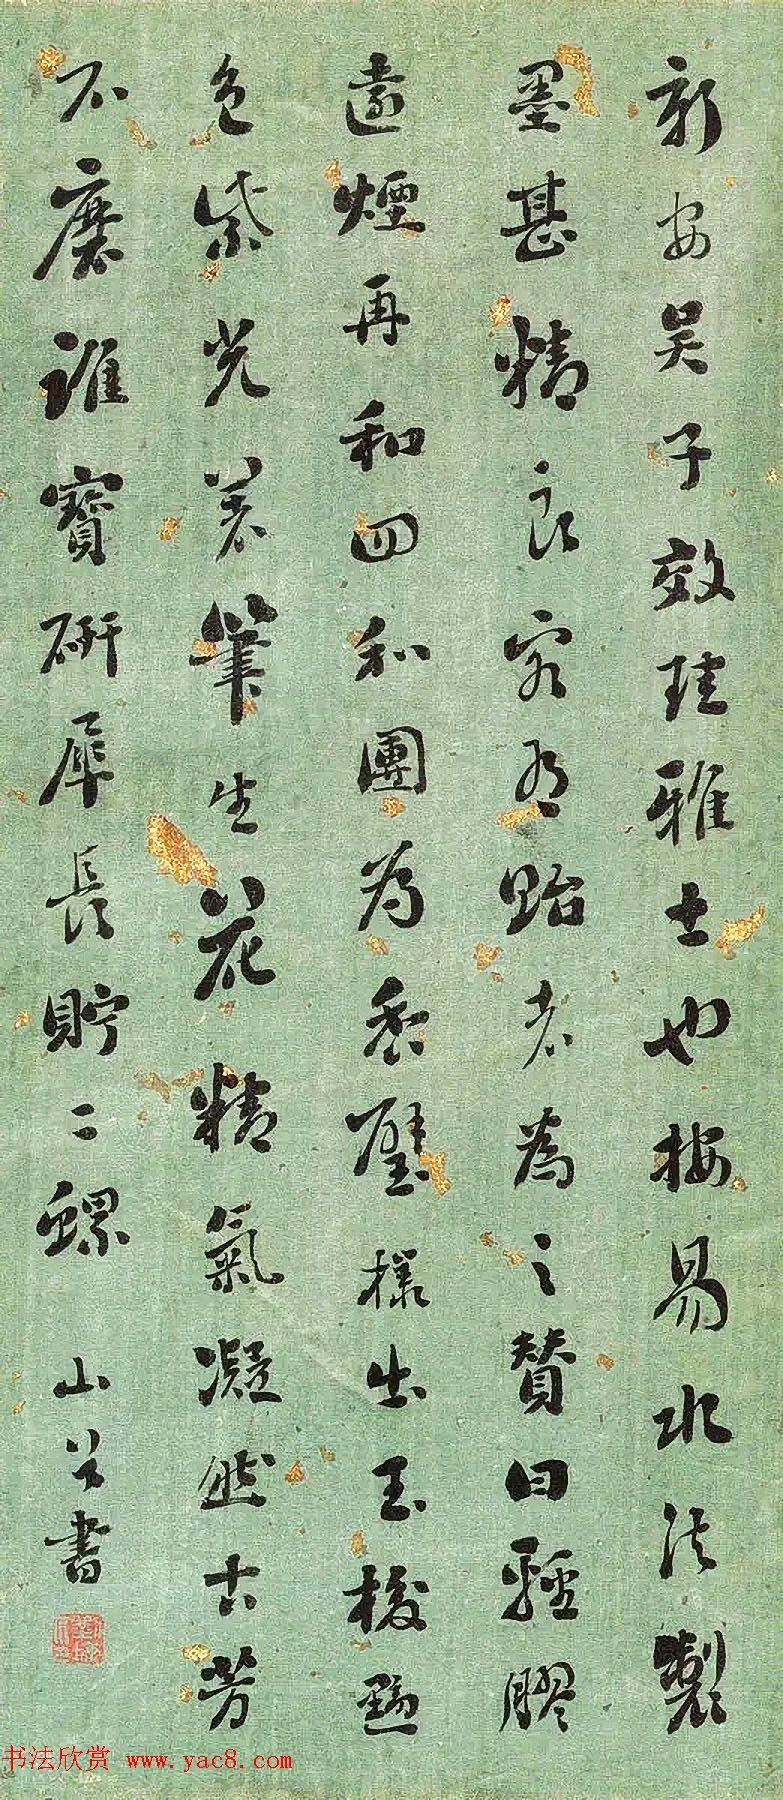 新安吴子效珪雅士也按易水法製
墨甚精良客有貽者為之贊曰輕膠
遠煙再和四和團為香璧樣出玉梭黝
色紫光筆生花精氣凝然古芳
不磨誰寶研犀長貯二螺 山書
书法欣赏 www.yac8.com